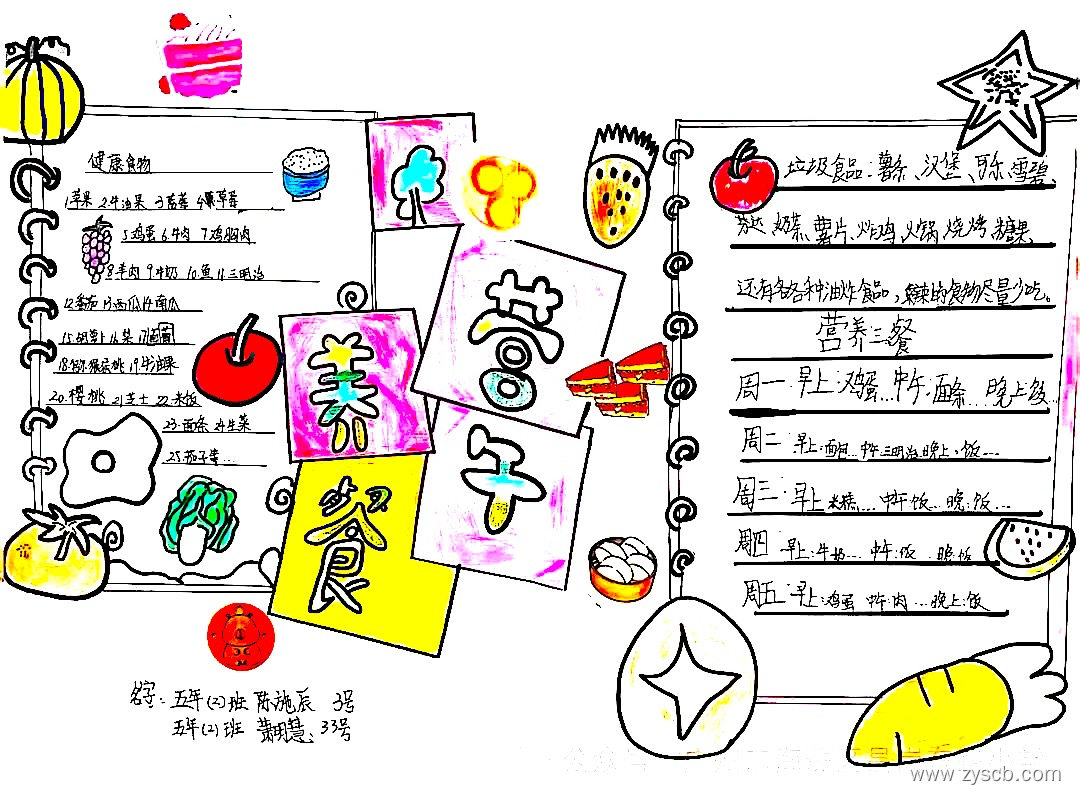 健康食物
1苹果 2.牛油果 3.蓝莓 4.草莓
5鸡蛋 6.牛肉 7鸡胸肉
8羊肉 9牛奶 10.鱼 11.三明治
12.番茄 13.西瓜 14.南瓜
15.胡萝卜 16.菜 17.
18. 猕猴桃 19.牛油果
20.樱桃 21.芝士 22.米饭
23.面条 24生菜
25.茄子等...
营养午餐
垃圾食品:薯条、汉堡、可乐、雪碧、
芬达、奶茶、薯片、炸鸡、火锅、烧烤、糖果、
还有各各种油炸食品,麻辣的食物尽量少吃。
营养三餐
周一:早上:鸡蛋...中午:面条...晚上:饭...
周二:早上:面包...中午:三明治 晚上:饭...
周三:早上 米糕... 中午:饭... 晚:饭...
周四 早上:牛奶... 中午:饭... 晚:饭
周五:早上:鸡蛋 中午:肉 ...晚上:饭
名字:五年(2)班 陈施辰 3号
五年(2)班 萧明慧、33号
www.zyscb.com